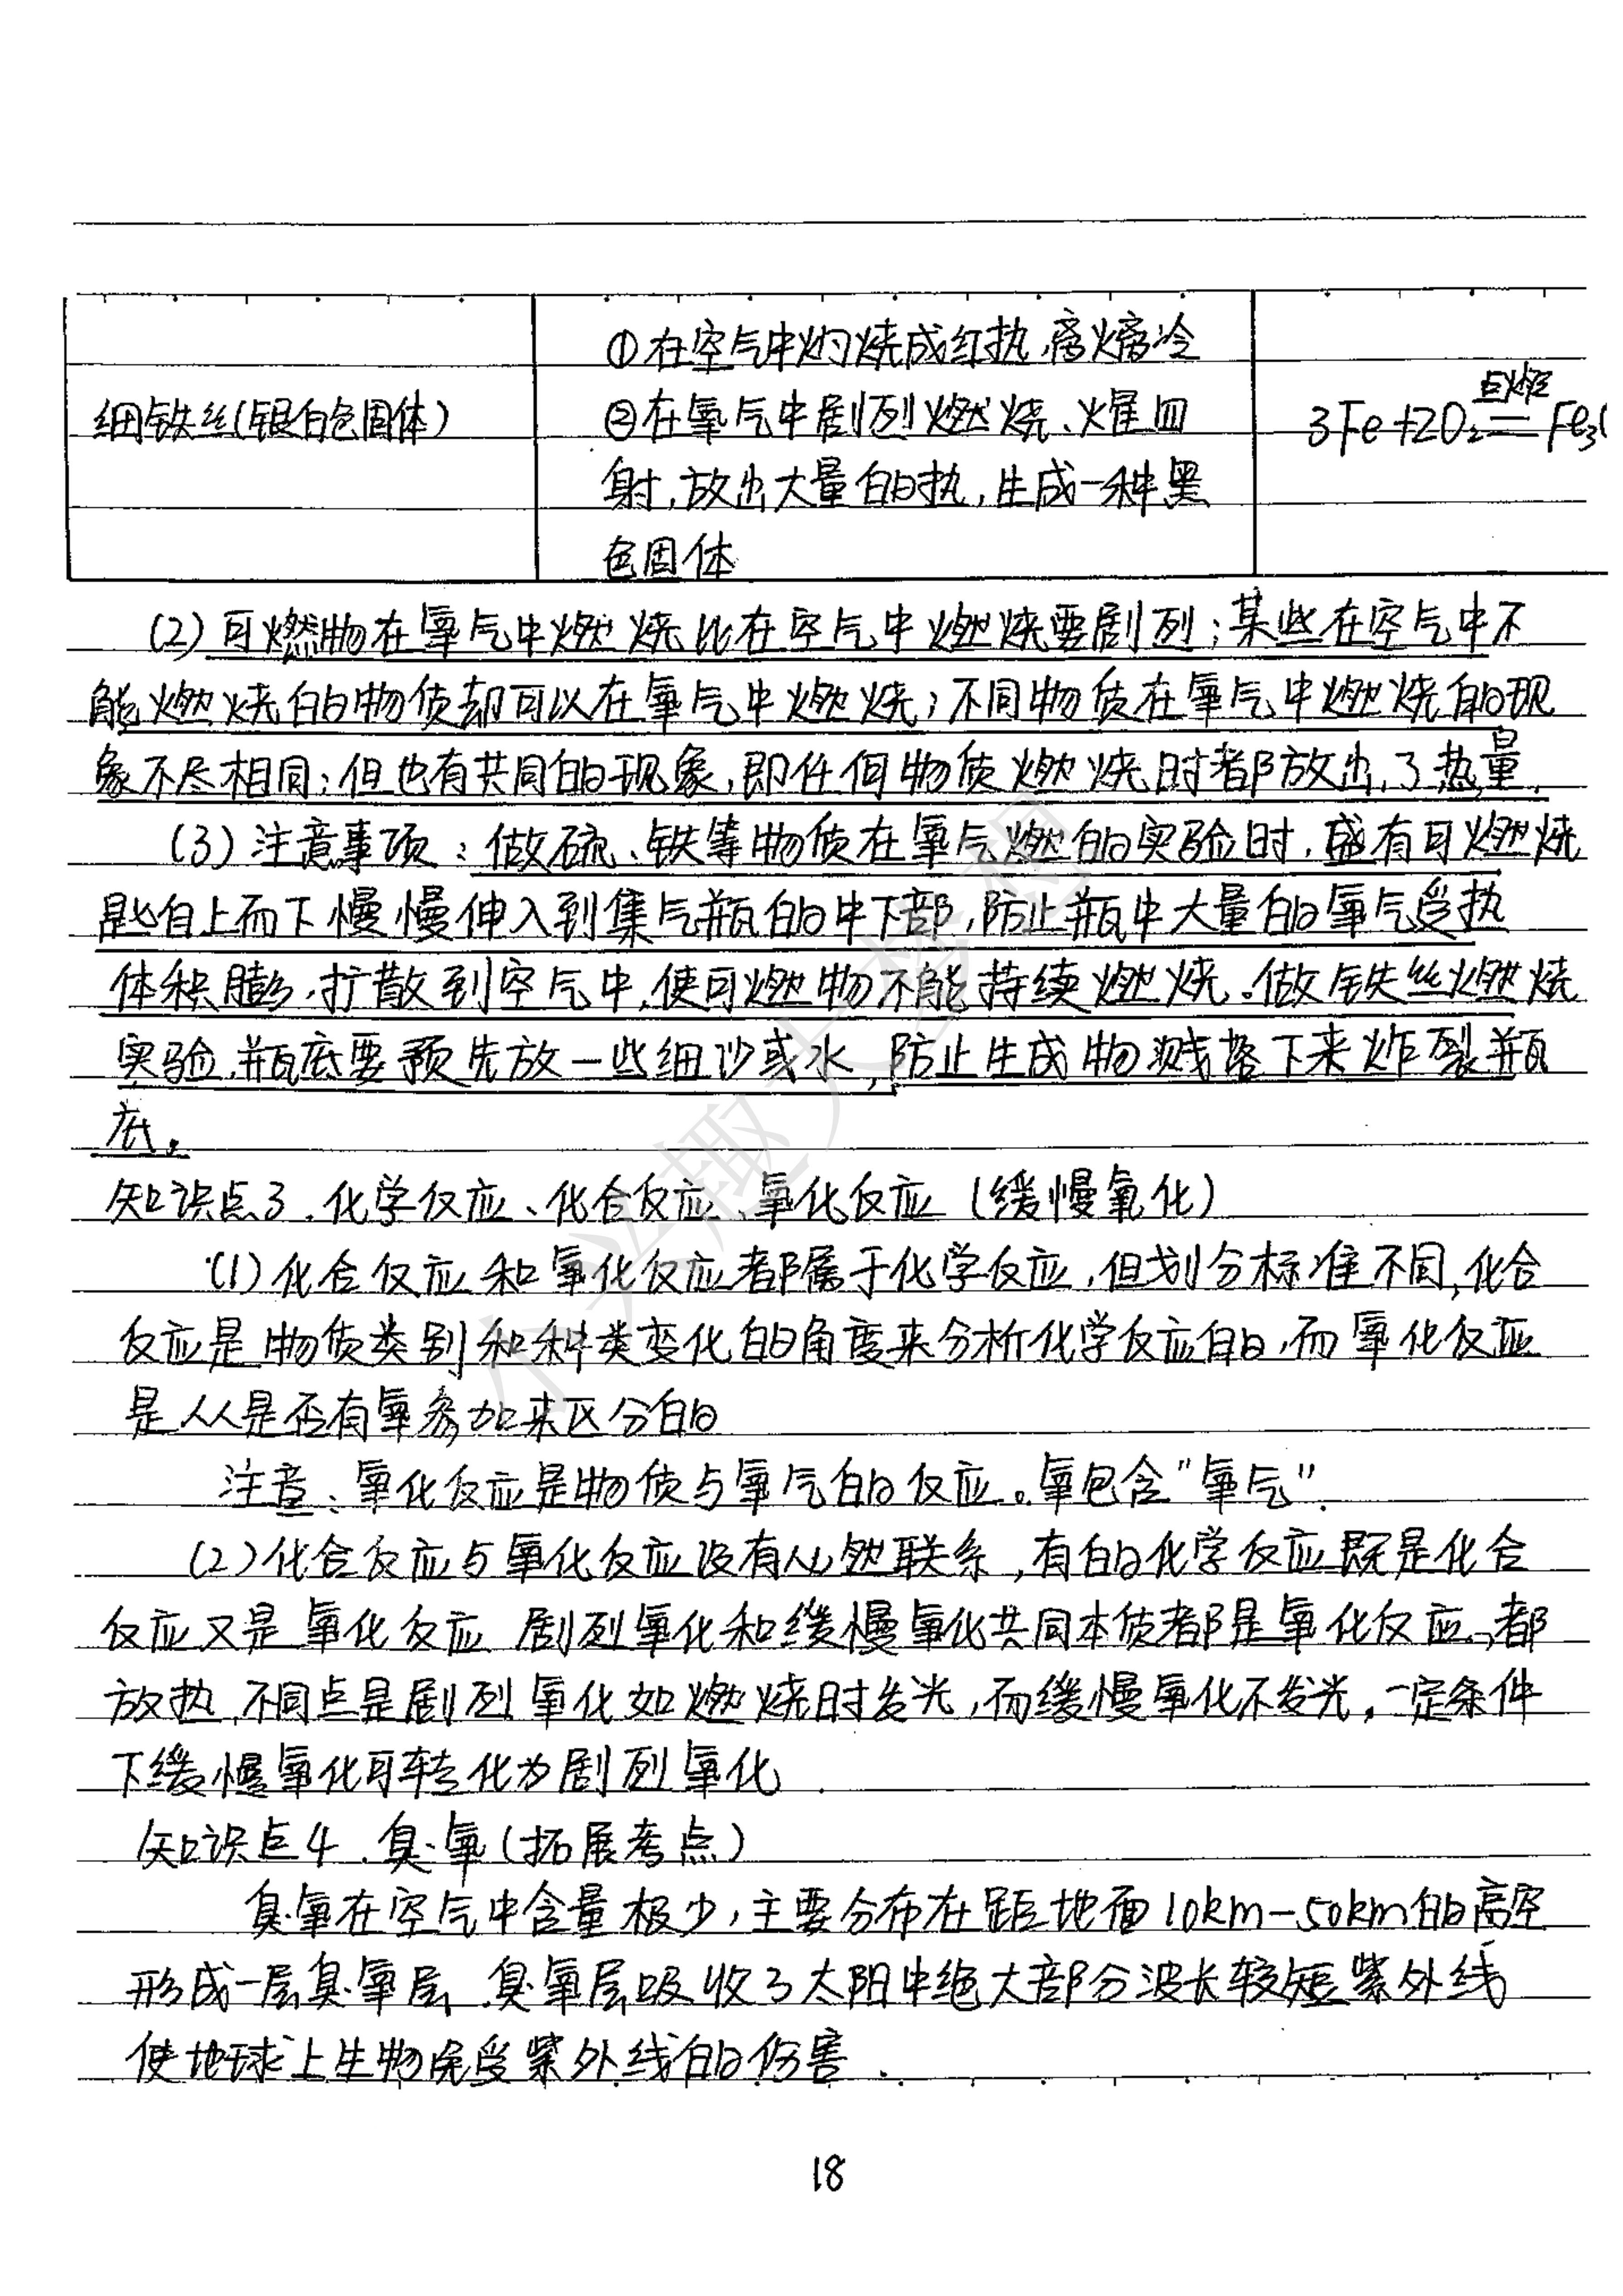 ①在空气中灼烧成红热,离火焰冷
细铁丝(银白色固体)
②在氧气中剧烈燃烧、火星四
射,放出大量的热,生成一种黑
色固体
点燃
3Fe+2O₂==Fe₃
(2)可燃物在氧气中燃烧比在空气中燃烧要剧烈;某些在空气中不
能燃烧的物质却可以在氧气中燃烧;不同物质在氧气中燃烧的现
象不尽相同;但也有共同的现象,即任何物质燃烧时都放出了热量.
(3)注意事项:做硫、铁等物质在氧气燃的实验时,盛有可燃烧
匙自上而下慢慢伸入到集气瓶的中下部,防止瓶中大量的氧气受热
体积膨,扩散到空气中,使可燃物不能持续燃烧。做铁丝燃烧
实验,瓶底要预先放一些细沙或水,防止生成物溅落下来炸裂瓶
底。
知识点3.化学反应、化合反应、氧化反应(缓慢氧化)
(1)化合反应和氧化反应都属于化学反应,但划分标准不同,化合
反应是物质类别和种类变化的角度来分析化学反应的,而氧化反应
是从是否有氧参加来区分的
注意:氧化反应是物质与氧气的反应。氧包含"氧气".
(2)化合反应与氧化反应没有必然联系,有的化学反应既是化合
反应又是氧化反应 剧烈氧化和缓慢氧化共同本质都是氧化反应,都
放热,不同点是剧烈氧化如燃烧时发光,而缓慢氧化不发光,一定条件
下缓慢氧化可转化为剧烈氧化.
知识点4.臭氧(拓展考点)
臭氧在空气中含量极少,主要分布在距地面10km-50km的高空
形成一层臭氧层,臭氧层吸收了太阳中绝大部分波长较短紫外线
使地球上生物免受紫外线的伤害.
18
小兴趣大梦想